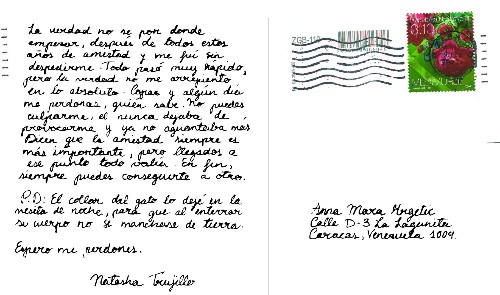 La verdad no se por donde
empesar, después de todos estos
años de amistad y me fui sin
despedirme. Todo pasó muy rápido,
pero la verdad no me arrepiento
en lo absoluto. Copas y algún dia
me perdonas, quién sabe. No puedes
culparme, el nunca dejaba de
provocarme y ya no aguantaba mas
Dicen que la amistad siempre es
más importante, pero llegados a
ese punto todo valía. En fin,
siempre puedes conseguirte a otro.
P.D: El collar del gato lo dejé en la
mesita de noche, para que al enterrar
su cuerpo no se manchase de tierra.
Espero me perdones.
Natasha Trujillo
Anna Mara
Calle D-3 La Lagunita
Caracas, Venezuela 1004.